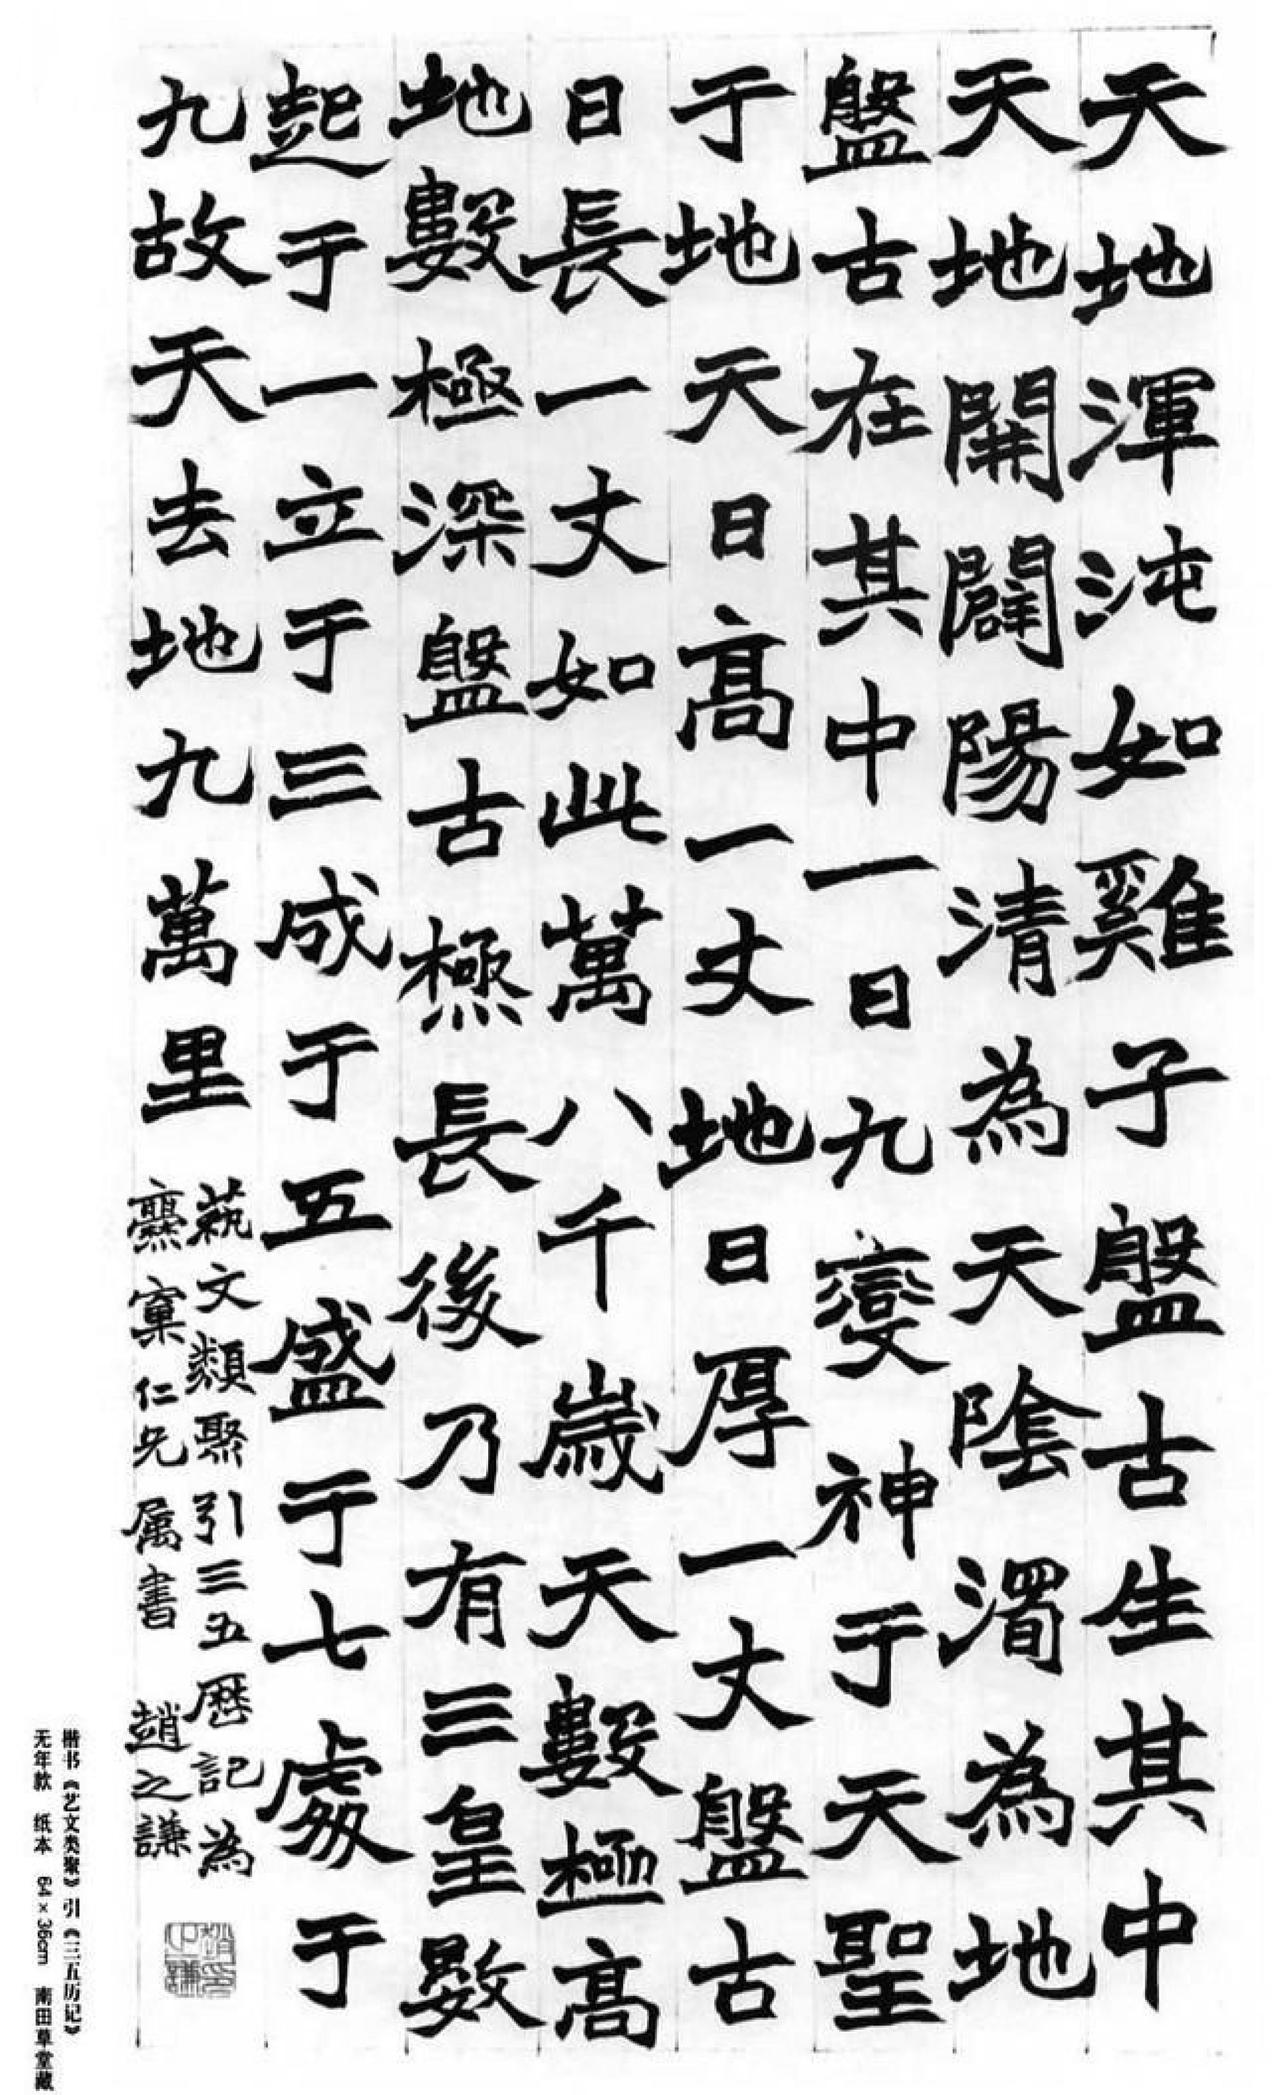 天地渾沌如雞子盤古生其中
天地開闢陽清為天陰濁為地
盤古在其中一日九變神于天聖
于地天日高一丈地日厚一丈盤古
日長一丈如此萬八千歲天數極高
地數極深盤古極長後乃有三皇數
起于一立于三成于五盛于七處于
九故天去地九萬里
蓺文類聚引三五歷記為
仁兄属書 趙之謙
趙之謙印
楷书《艺文类聚》引《三五历记》
无年款 纸本 64×36cm 南田草堂藏